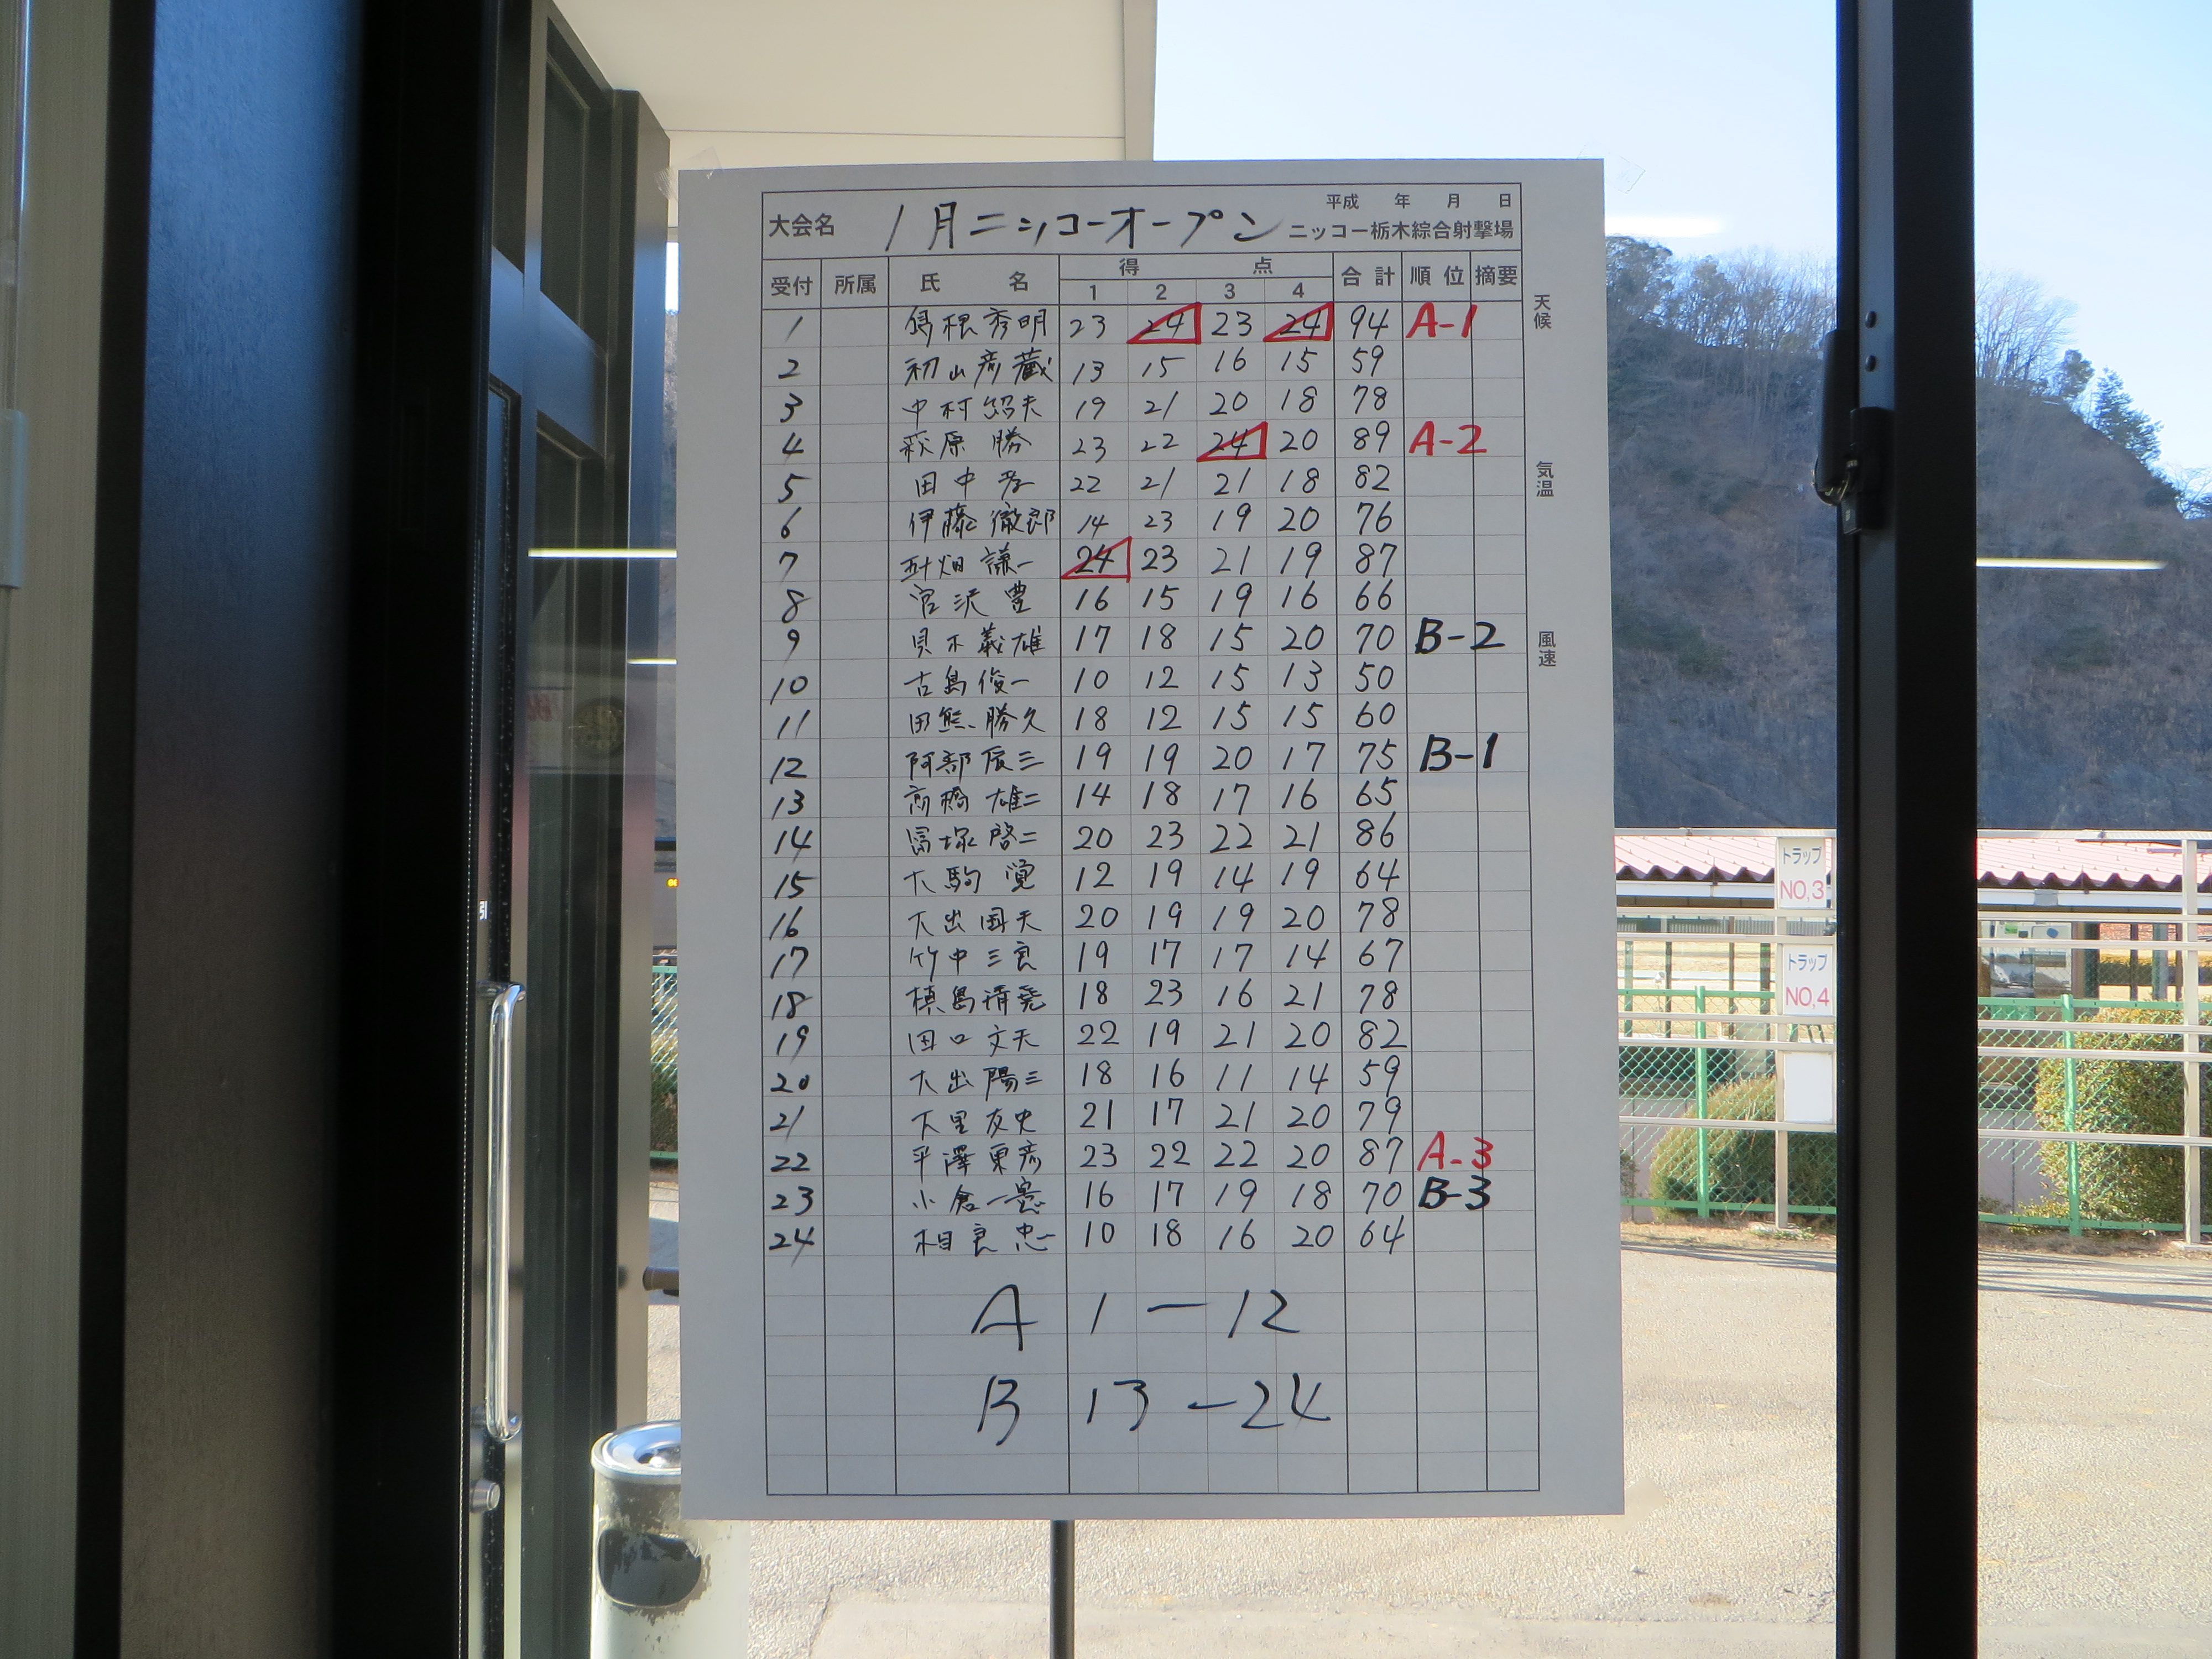 平成 年 月 日
大会名 1月ニッコーオープン ニッコー栃木綜合射撃場
受付 所属 氏 名 得 点 合計 順位 摘要
1 2 3 4
1 島根秀明 23 24 23 24 94 A-1
2 初山彦蔵 13 15 16 15 59
3 中村紹夫 19 21 20 18 78
4 萩原 勝 23 22 24 20 89 A-2
5 田中 孝 22 21 21 18 82
6 伊藤徹郎 14 23 19 20 76
7 畑 謙一 24 23 21 19 87
8 宮沢 豊 16 15 19 16 66
9 貝木義雄 17 18 15 20 70 B-2
10 古島俊一 10 12 15 13 50
11 田熊勝久 18 12 15 15 60
12 阿部辰三 19 19 20 17 75 B-1
13 高橋雄二 14 18 17 16 65
14 冨塚啓二 20 23 22 21 86
15 大駒 12 19 14 19 64
16 大出国夫 20 19 19 20 78
17 竹中三良 19 17 17 14 67
18 槙島清 18 23 16 21 78
19 田口文夫 22 19 21 20 82
20 大出陽三 18 16 11 14 59
21 大里友史 21 17 21 20 79
22 平澤東彦 23 22 22 20 87 A-3
23 小倉一 16 17 19 18 70 B-3
24 相良 忠 10 18 16 20 64
A 1-12
B 13-24
天候
気温
風速
トラップ
NO,3
トラップ
NO,4